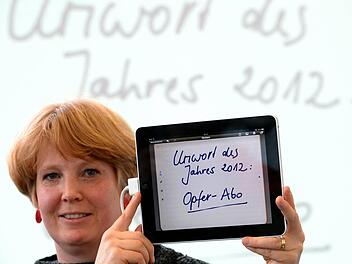 Unwort des
Jahres 2012:
Unwort des
Jahres 2012:
Opfer-Abo